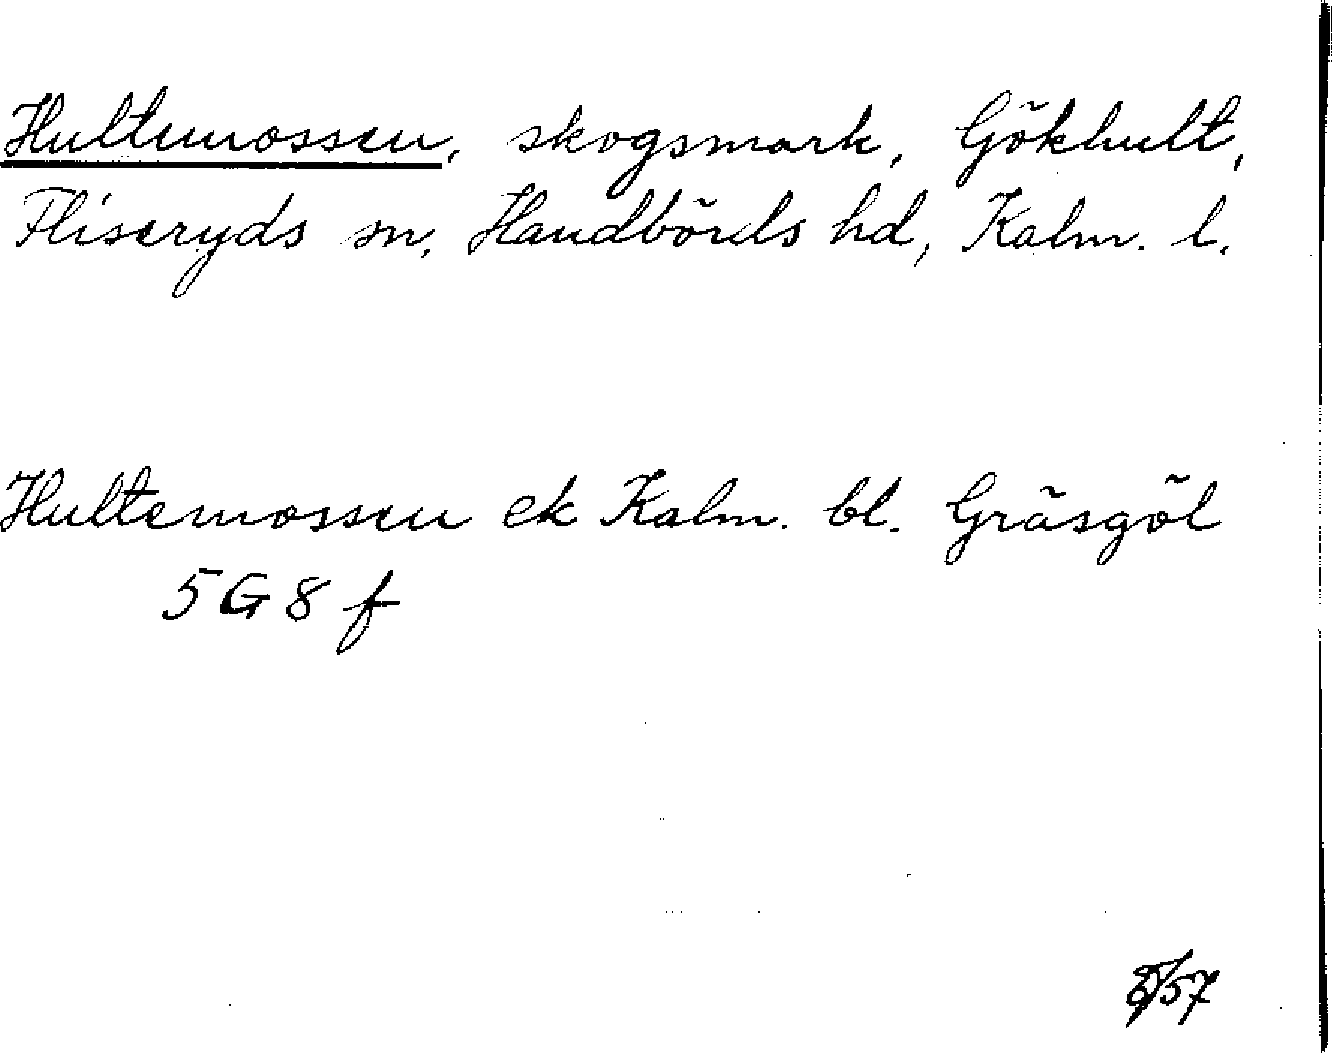 Hultemossen, skogsmark, Gökhult,
Fliseryds sn, Handbörds hd, Kalm. l.
Hultemossen ek Kalm. bl. Gräsgöl
5G8f